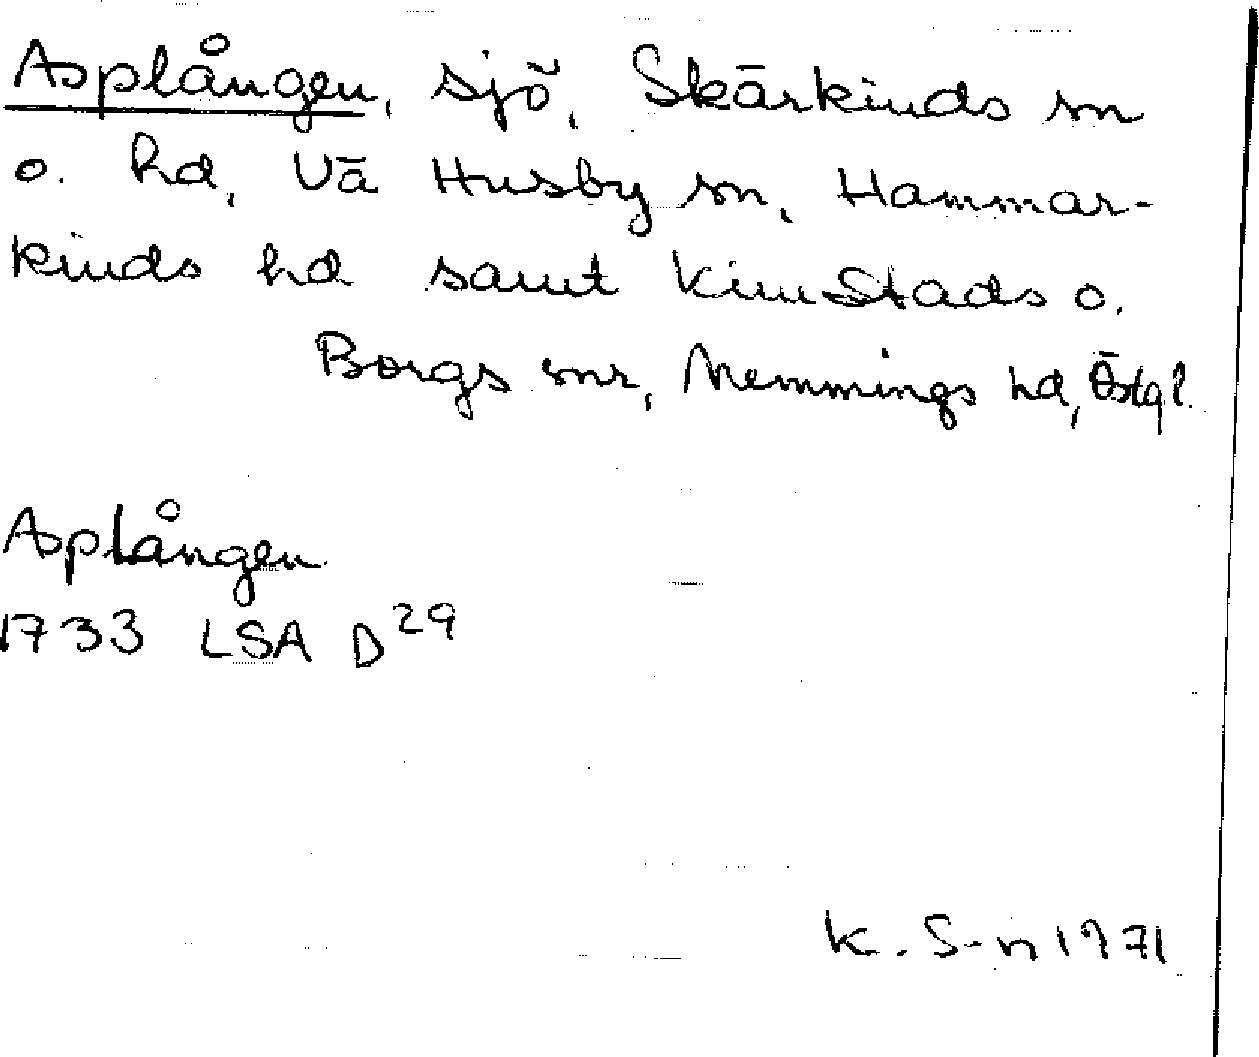 Asplången, sjö, Skärkinds sn
o. hd, Vä Husby sn, Hammar-
kinds hd samt Kimstads o.
Borgs snr, Memmings hd, Östgl.
Asplången
1733 LSA D29
K. S-n 1971